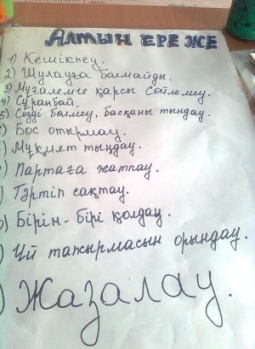 АЛТЫН ЕРЕЖЕ
1) Кешікпеу.
2) Шулауға болмайды.
3) Мұғалемге қарсы сөйлемеу.
4) Сұранбай.
5) Сөзді бөлмеу, басқаны тыңдау.
) Бос отырмау.
) Мұқият тыңдау.
) Партаға жатпау.
) Тәртіп сақтау.
) Бірін-бірі қолдау.
) Үй тапсырмасын орындау.
) Жазалау.